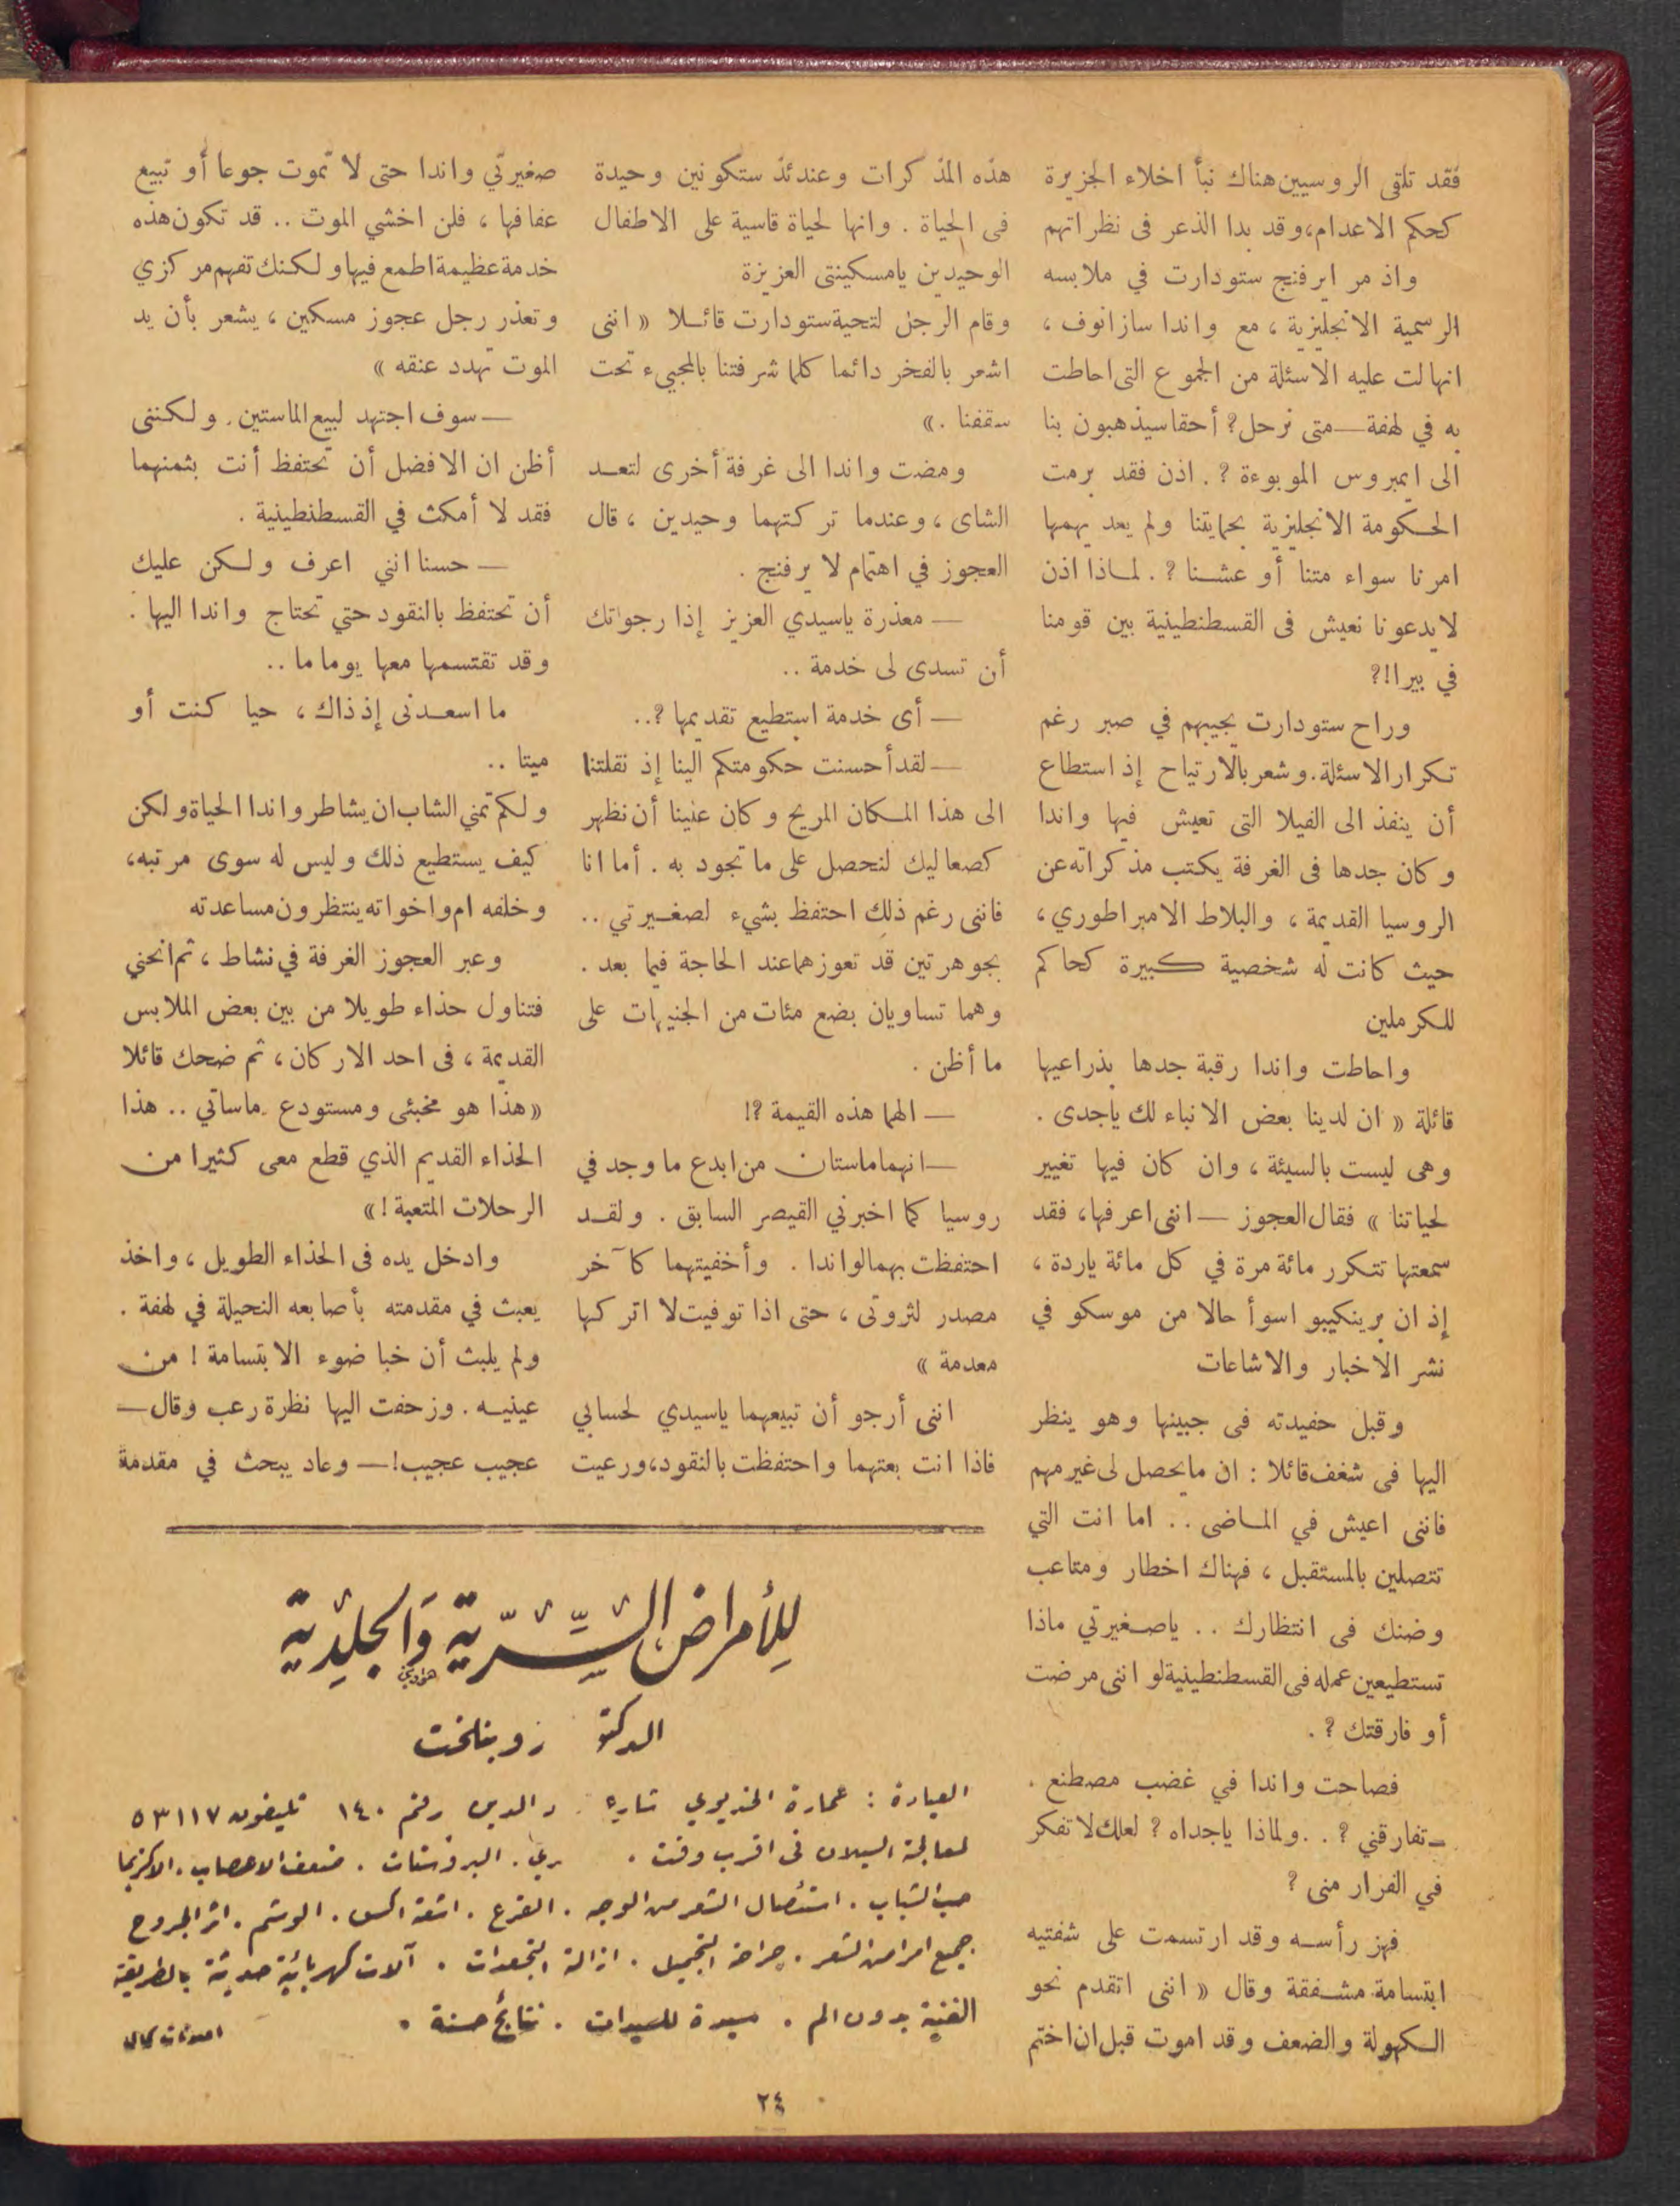 فقد تلقى الروسيين هناك نبأ اخلاء الجزيرة
كحكم الاعدام، وقد بدا الذعر فى نظراتهم
واذ مر ايرفنج ستودارت في ملابسه
الرسمية الانجليزية ، مع واندا سازانوف ،
انهالت عليه الاسئلة من الجموع التى احاطت
به في لهفة — متى نرحل؟ أحقا سيذهبون بنا
الى ايمبروس الموبوءة ؟ . اذن فقد برمت
الحكومة الانجليزية بحمايتنا ولم يعد يهمها
امرنا سواء متنا أو عشنا ؟ . لماذا اذن
لا يدعونا نعيش فى القسطنطينية بين قومنا
في بيرا!؟
وراح ستودارت يجيبهم في صبر رغم
تكرار الاسئلة. وشعر بالارتياح إذ استطاع
أن ينفذ الى الفيلا التى تعيش فيها واندا
وكان جدها فى الغرفة يكتب مذكراته عن
الروسيا القديمة ، والبلاط الامبراطوري ،
حيث كانت له شخصية كبيرة كحاكم
للكرملين
واحاطت واندا رقبة جدها بذراعيها
قائلة « ان لدينا بعض الانباء لك ياجدى .
وهى ليست بالسيئة ، وان كان فيها تغيير
لحياتنا » فقال العجوز — اننى اعرفها، فقد
سمعتها تتكرر مائة مرة في كل مائة ياردة ،
إذ ان برينكيبو اسوأ حالا من موسكو في
نشر الاخبار والاشاعات
وقبل حفيدته فى جبينها وهو ينظر
اليها فى شغف قائلا : ان ما يحصل لى غير مهم
فاننى اعيش في الماضى . . اما انت التي
تتصلين بالمستقبل ، فهناك اخطار ومتاعب
وضنك فى انتظارك . . ياصغيرتي ماذا
تستطيعين عمله فى القسطنطينية لو اننى مرضت
أو فارقتك ؟ .
فصاحت واندا في غضب مصطنع .
— تفارقني ؟ . . ولماذا ياجداه ؟ لعلك لا تفكر
في الفرار منى ؟
فهز رأسه وقد ارتسمت على شفتيه
ابتسامة مشفقة وقال « اننى اتقدم نحو
الكهولة والضعف وقد اموت قبل ان اختم
هذه المذكرات وعندئذ ستكونين وحيدة
فى الحياة . وانها لحياة قاسية على الاطفال
الوحيدين يامسكينتى العزيزة
وقام الرجل لتحية ستودارت قائلا « اننى
اشعر بالفخر دائما كلما شرفتنا بالمجيىء تحت
سقفنا . »
ومضت واندا الى غرفة أخرى لتعد
الشاى ، وعندما تركتهما وحيدين ، قال
العجوز في اهتمام لايرفنج .
— معذرة ياسيدي العزيز إذا رجوتك
أن تسدى لى خدمة . .
— أى خدمة استطيع تقديمها ؟..
— لقد أحسنت حكومتكم الينا إذ نقلتنا
الى هذا المكان المريح وكان علينا أن نظهر
كصعاليك لنحصل على ما تجود به . أما انا
فاننى رغم ذلك احتفظ بشيء لصغيرتي . .
بجوهرتين قد تعوزهما عند الحاجة فيما بعد .
وهما تساويان بضع مئات من الجنيهات على
ما أظن .
— الهما هذه القيمة ؟!
— انهما ماستان من ابدع ما وجد في
روسيا كما اخبرني القيصر السابق . ولقد
احتفظت بهما لواندا . وأخفيتهما كآخر
مصدر لثروتى ، حتى اذا توفيت لا اتركها
معدمة »
اننى أرجو أن تبيعهما ياسيدي لحسابي
فاذا انت بعتهما واحتفظت بالنقود، ورعيت
صغيرتي واندا حتى لا تموت جوعا أو تبيع
عفافها ، فلن اخشي الموت . . قد تكون هذه
خدمة عظيمة اطمع فيها ولكنك تفهم مركزي
وتعذر رجل عجوز مسكين ، يشعر بأن يد
الموت تهدد عنقه »
— سوف اجتهد لبيع الماستين. ولكننى
أظن ان الافضل أن تحتفظ أنت بثمنهما
فقد لا أمكث في القسطنطينية .
— حسنا انني اعرف ولكن عليك
أن تحتفظ بالنقود حتي تحتاج واندا اليها .
وقد تقتسمها معها يوما ما . .
ما اسعدنى إذ ذاك ، حيا كنت أو
ميتا . .
ولكم تمني الشاب ان يشاطر واندا الحياة ولكن
كيف يستطيع ذلك وليس له سوى مرتبه،
وخلفه ام واخواته ينتظرون مساعدته
وعبر العجوز الغرفة في نشاط ، ثم انحني
فتناول حذاء طويلا من بين بعض الملابس
القديمة ، فى احد الاركان ، ثم ضحك قائلا
« هذا هو مخبئى ومستودع ماساتي . . هذا
الحذاء القديم الذي قطع معى كثيرا من
الرحلات المتعبة ! »
وادخل يده فى الحذاء الطويل ، واخذ
يعبث في مقدمته بأصابعه النحيلة في لهفة .
ولم يلبث أن خبا ضوء الابتسامة ! من
عينيه . وزحفت اليها نظرة رعب وقال —
عجيب عجيب! — وعاد يبحث في مقدمة
للأمراض السرية والجلدية
الدكتور زوينلخت
العيادة : عمارة الخديوي شارع عماد الدين رقم ١٤٠ تليفون ٥٣١١٧
لمعالجة السيلان فى اقرب وقت . البروستات . ضعف الاعصاب . الاكزيما
حب الشباب . استئصال الشعر من الوجه . القرع . اشعة اكس . الوشم . اثر الجروح
جميع امراض الشعر . جراحة التجميل . ازالة التجعدات . آلات كهربائية حديثة بالطريقة
الفنية بدون الم . سيدة للسيدات . نتائج حسنة .
٢٤